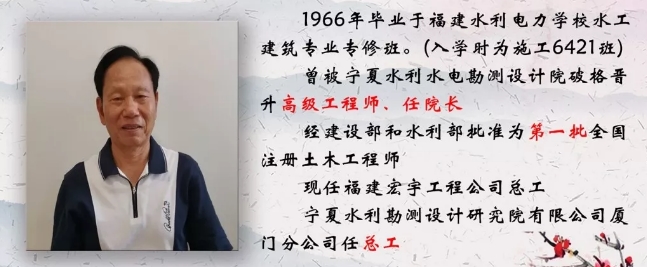 1966年毕业于福建水利电力学校水工
建筑专业专修班。(入学时为施工6421班)
曾被宁夏水利水电勘测设计院破格晋
升高级工程师、任院长
经建设部和水利部批准为第一批全国
注册土木工程师
现任福建宏宇工程公司总工
宁夏水利勘测设计研究院有限公司厦
门分公司任总工